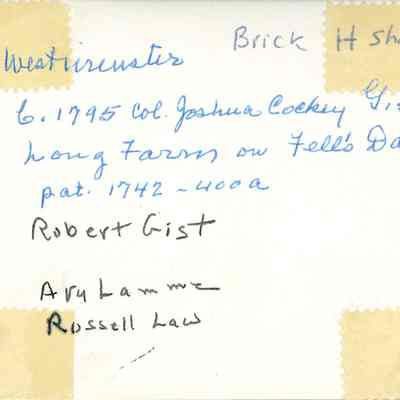 Brick H sh
Westminster
C. 1795 Col. Joshua Cockey Gis
Long Farm on Fell's Da
pat. 1742 - 400a
Robert Gist
Avy Lamme
Russell Law